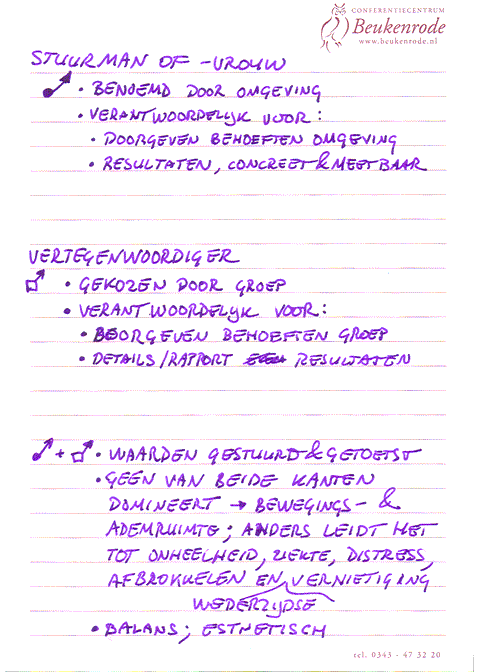 CONFERENTIECENTRUM
Beukenrode
www.beukenrode.nl
STUURMAN OF -VROUW
• BENOEMD DOOR OMGEVING
• VERANTWOORDELIJK VOOR:
• DOORGEVEN BEHOEFTEN OMGEVING
• RESULTATEN, CONCREET & MEETBAAR
VERTEGENWOORDIGER
• GEKOZEN DOOR GROEP
• VERANTWOORDELIJK VOOR:
• DOORGEVEN BEHOEFTEN GROEP
• DETAILS/RAPPORT RESULTATEN
+ • WAARDEN GESTUURD & GETOETST
• GEEN VAN BEIDE KANTEN
DOMINEERT → BEWEGINGS- &
ADEMRUIMTE; ANDERS LEIDT HET
TOT ONHEELHEID, ZIEKTE, DISTRESS,
AFBROKKELEN EN VERNIETIGING
WEDERZIJDSE
• BALANS; ESTHETISCH
tel. 0343 - 47 32 20